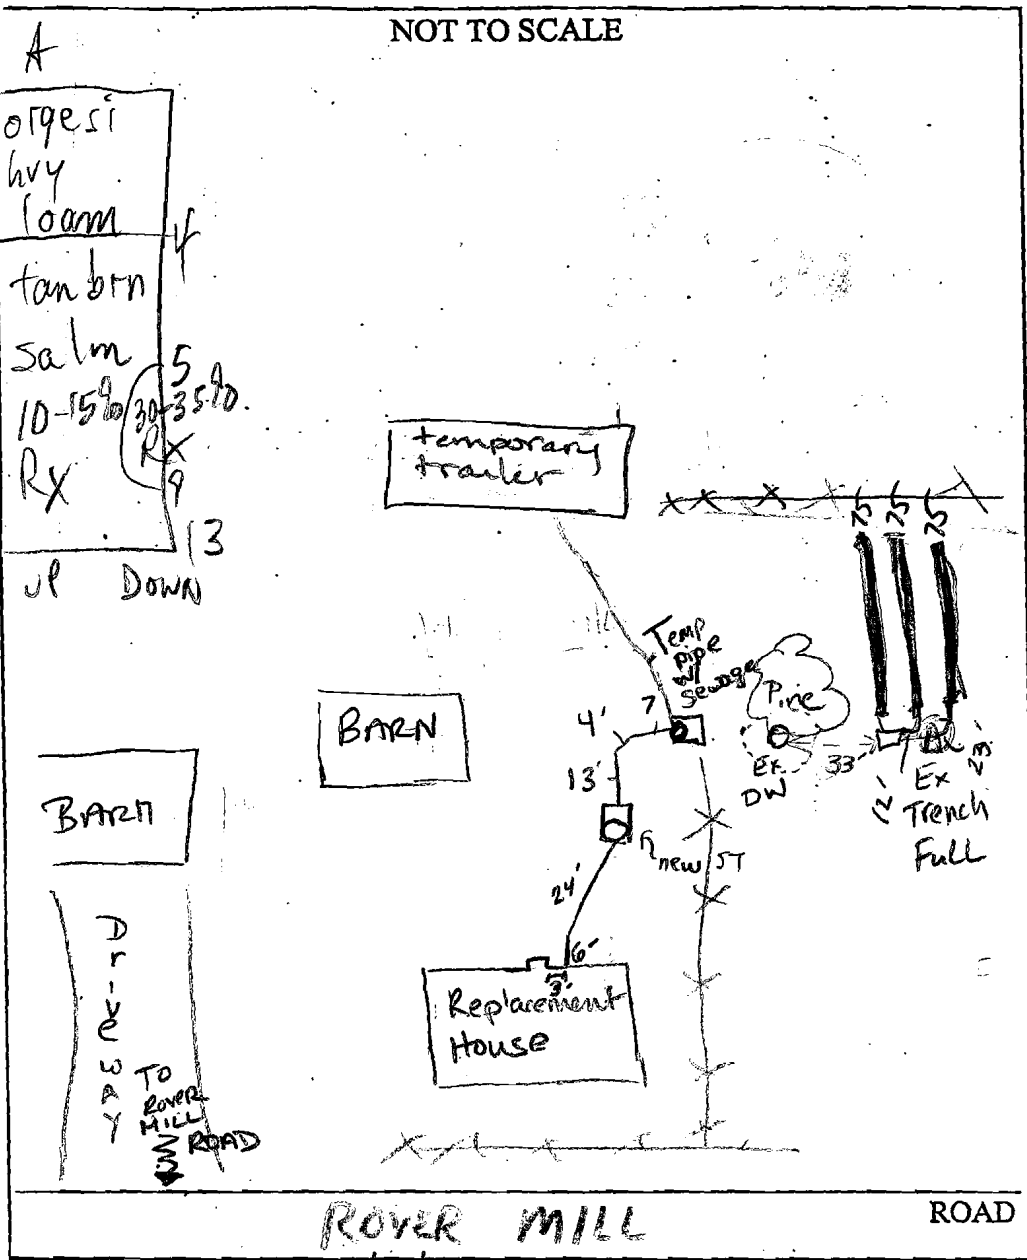 NOT TO SCALE
A
orgesi
hvy
loam
4
tan brn
salm
5
10-15%
30-35%
Rx
Rx
9
13
UP DOWN
temporary
trailer
75 75 75
Temp
pipe
w/
sewage
Pine
7
4'
13'
BARN
BARN
Ex
DW
33
12'
23'
Ex
Trench
Full
new ST
24'
6'
3'
Replacement
House
DrivewAY
TO
Rover
MILL
ROAD
ROVER MILL ROAD